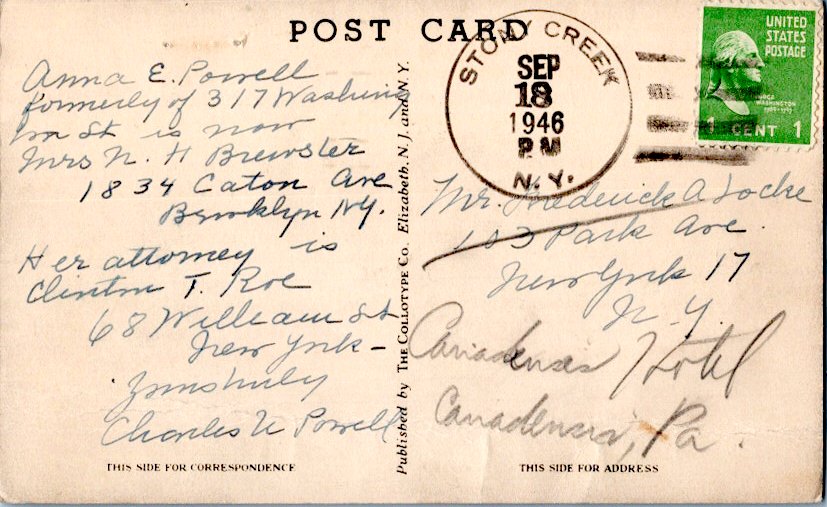 POST CARD
Anna E. Powell
formerly of 317 Washing
ton St is now
Mrs N. H Brewster
1834 Caton Ave
Brooklyn NY.
Her attorney is
Clinton T. Roe
68 William St
New York -
Yours truly
Charles U Powell
THIS SIDE FOR CORRESPONDENCE
Published by THE COLLOTYPE CO. Elizabeth, N. J. and N. Y.
STONY CREEK
SEP
18
1946
PM
N.Y.
UNITED
STATES
POSTAGE
WASHINGTON
1 CENT 1
Mr. Frederick A Locke
103 Park Ave.
New York 17
N. Y.
Canadensis Hotel
Canadensis, Pa.
THIS SIDE FOR ADDRESS